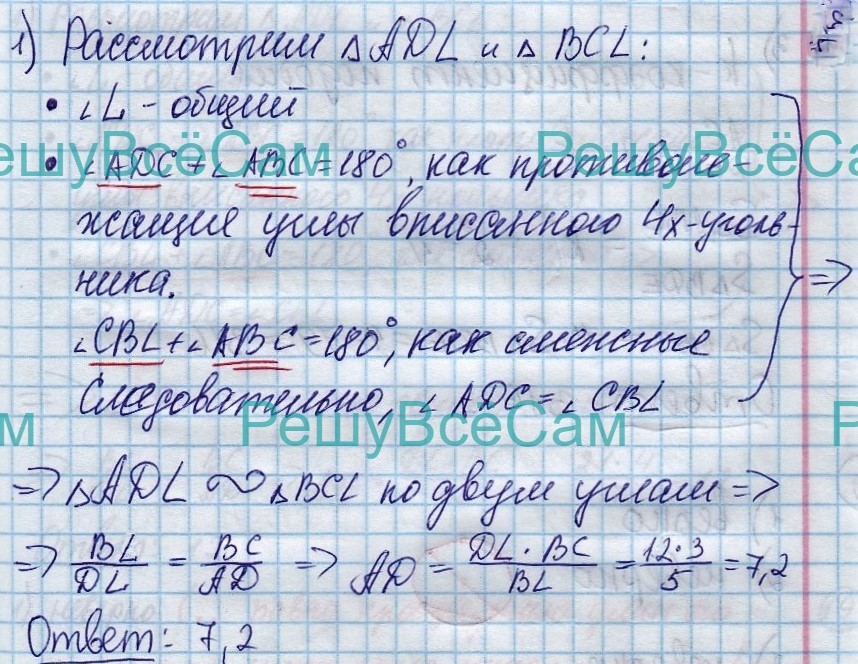 1) Рассмотрим △ADL и △BCL:
• ∠L - общий
• ∠ADC + ∠ABC = 180°, как противоле-
жащие углы вписанного 4х-уголь-
ника.
∠CBL + ∠ABC = 180°, как смежные
Следовательно, ∠ADC = ∠CBL
⇒
⇒ △ADL ∼ △BCL по двум углам ⇒
⇒ BL/DL = BC/AD ⇒ AD = DL·BC/BL = 12·3/5 = 7,2
Ответ: 7,2
РешуВсёСам
РешуВсёСам
РешуВсеСам